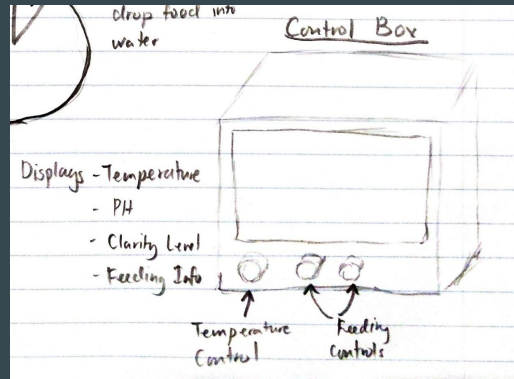 drop food into
water
Control Box
Displays - Temperature
- PH
- Clarity Level
- Feeding Info
Temperature
Control
Feeding
Controls